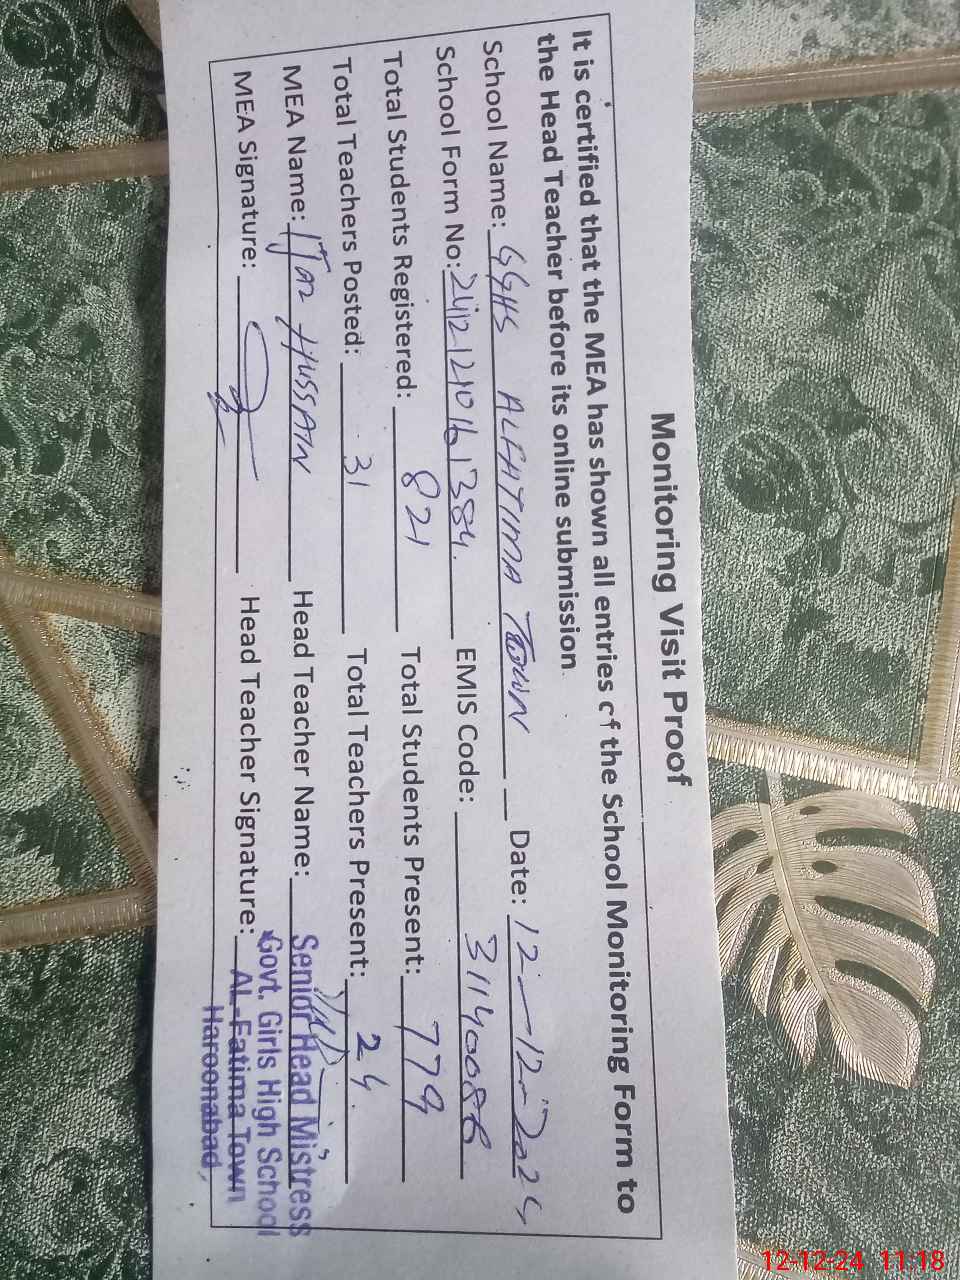 Monitoring Visit Proof
It is certified that the MEA has shown all entries of the School Monitoring Form to
the Head Teacher before its online submission
School Name: GGHS ALFATIMA TOWN Date: 12-12-2024
School Form No: EMIS Code: 31140086
Total Students Registered: 821 Total Students Present: 779
Total Teachers Posted: 31 Total Teachers Present: 24
MEA Name: Ijaz HUSSAIN Head Teacher Name: Senior Head Mistress
MEA Signature: Head Teacher Signature: Govt. Girls High School
AL-Fatima Town
Haroonabad,
12-12-24 11:18